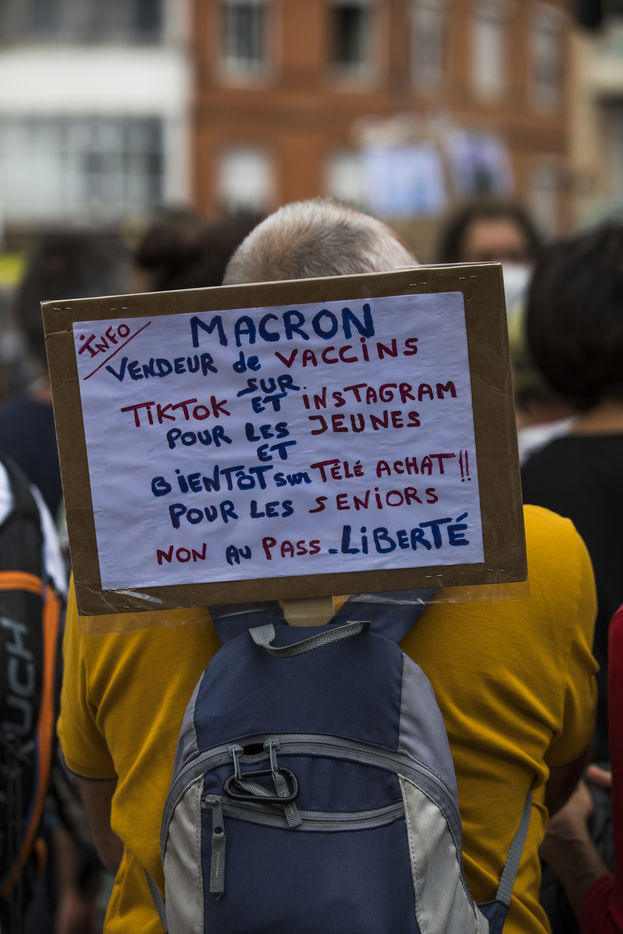 INFO
MACRON
VENDEUR de VACCINS
SUR
TIKTOK ET iNSTAGRAM
POUR LES JEUNES
ET
BiENTÔT sur TÉLÉ ACHAT !!
POUR LES SENIORS
NON AU PASS-LiBERTÉ